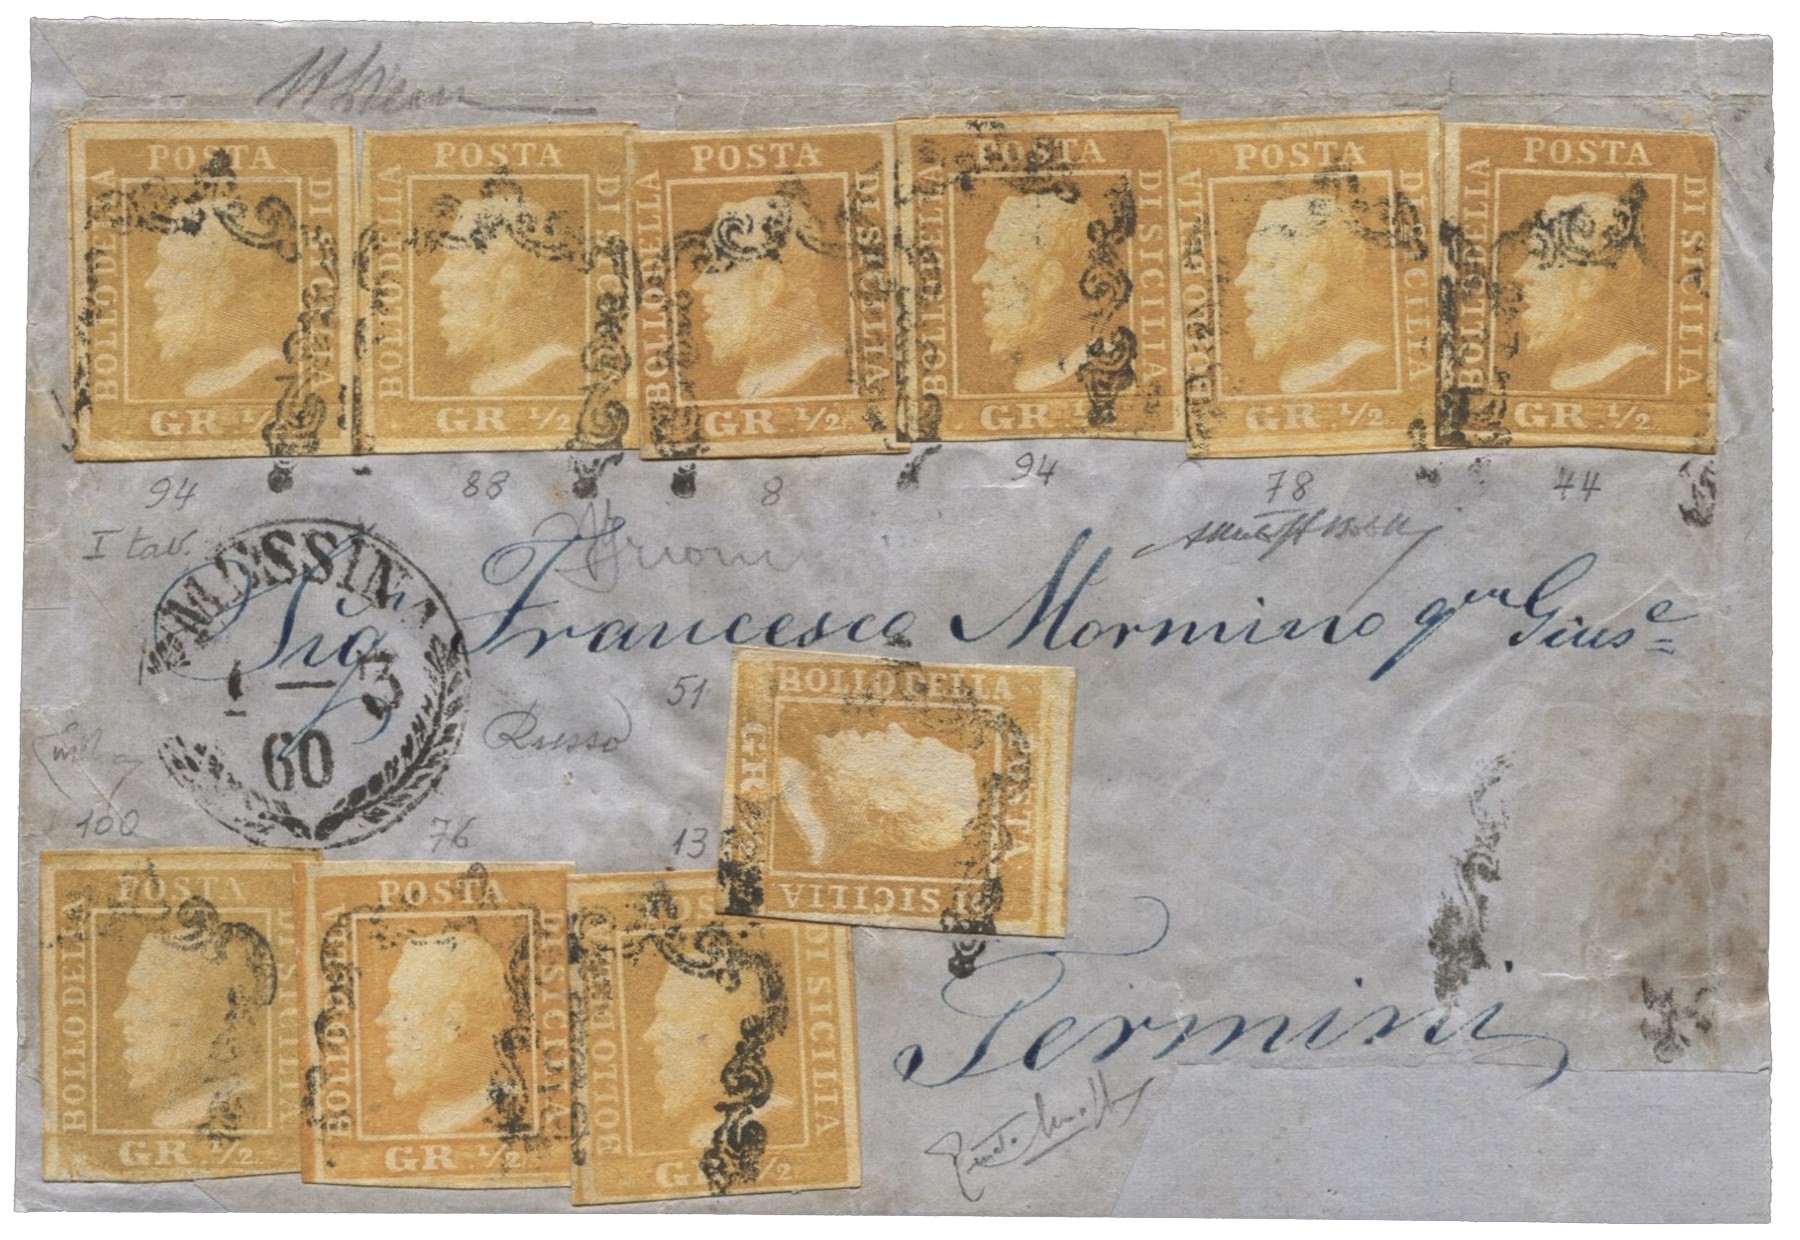 POSTA BOLLO DELLA DI SICILIA GR. 1/2.
POSTA BOLLO DELLA DI SICILIA GR. 1/2.
POSTA BOLLO DELLA DI SICILIA GR. 1/2.
POSTA BOLLO DELLA DI SICILIA GR. 1/2.
POSTA BOLLO DELLA DI SICILIA GR. 1/2.
POSTA BOLLO DELLA DI SICILIA GR. 1/2.
94 88 8 94 78 44
I tav.
MESSINA
1 – 3
60
Sig.r Francesco Mormino q.m Gius.e
51
Russo
BOLLO DELLA POSTA DI SICILIA GR. 1/2
100 76 13
POSTA BOLLO DELLA DI SICILIA GR. 1/2.
POSTA BOLLO DELLA DI SICILIA GR. 1/2.
POSTA BOLLO DELLA DI SICILIA GR. 1/2.
Termini